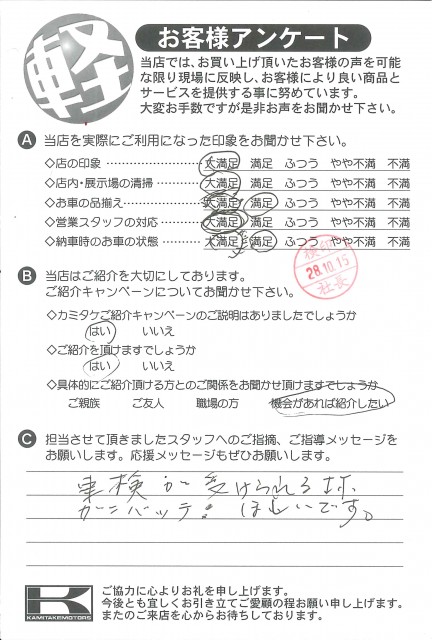 軽
お客様アンケート
当店では、お買い上げ頂いたお客様の声を可能
な限り現場に反映し、お客様により良い商品と
サービスを提供する事に努めています。
大変お手数ですが是非お声をお聞かせ下さい。
A 当店を実際にご利用になった印象をお聞かせ下さい。
◇店の印象 大満足 満足 ふつう やや不満 不満
◇店内・展示場の清掃 大満足 満足 ふつう やや不満 不満
◇お車の品揃え 大満足 満足 ふつう やや不満 不満
◇営業スタッフの対応 大満足 満足 ふつう やや不満 不満
◇納車時のお車の状態 大満足 満足 ふつう やや不満 不満
28.10.15
社長
B 当店はご紹介を大切にしております。
ご紹介キャンペーンについてお聞かせ下さい。
◇カミタケご紹介キャンペーンのご説明はありましたでしょうか
はい いいえ
◇ご紹介を頂けますでしょうか
はい いいえ
◇具体的にご紹介頂ける方とのご関係をお聞かせ頂けますでしょうか
ご親族 ご友人 職場の方 機会があれば紹介したい
C 担当させて頂きましたスタッフへのご指摘、ご指導メッセージを
お願いします。応援メッセージもぜひお願いします。
車検が受けられる様
ガンバッテ ほしいです。
K
KAMITAKEMOTORS
ご協力に心よりお礼を申し上げます。
今後とも宜しくお引き立てご愛顧の程お願い申し上げます。
またのご来店を心からお待ちしております。